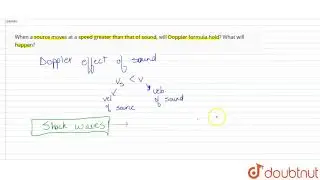 When a source moves at a speed greater than that of sound, will Doppler formula hold? What will
happen?
Doppler effect of sound
Vs < V
vel of source
velo. of sound
Shock waves →
doubtnut